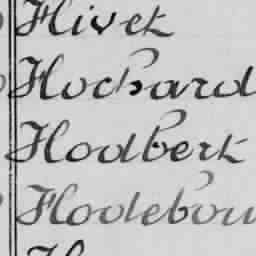 Hivet
Hochard
Hodbert
Hodebou